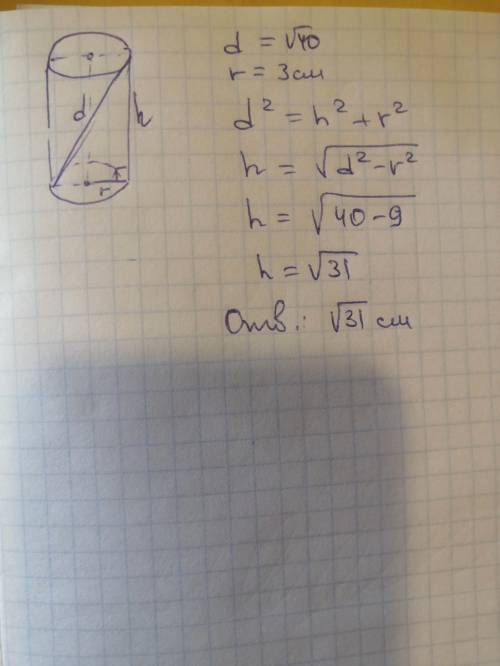 d = √40
r = 3 см
d² = h² + r²
h = √d² - r²
h = √40 - 9
h = √31
Отв.: √31 см
d
h
r